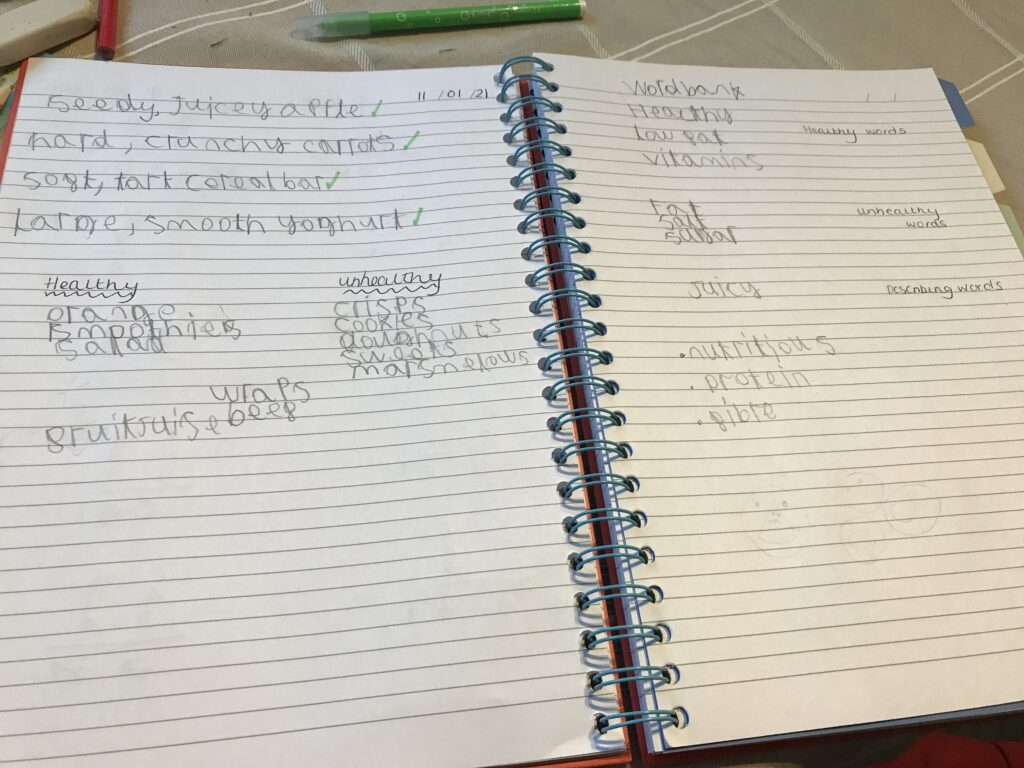 Seedy, Juicey apple ✓ 11/01/21
hard, crunchy carrots ✓
soft, tart cereal bar ✓
Large, smooth yoghurt ✓
Healthy
orange
smoothies
salad
unhealthy
crisps
cookies
doughnuts
sweets
marsmelows
wraps
fruitjuise beef
Wordbank / /
Healthy
Low fat Healthy words
vitamins
Fat unhealthy
salt words
sugar
Juicy Describing words
.nutritious
.protein
.fibre